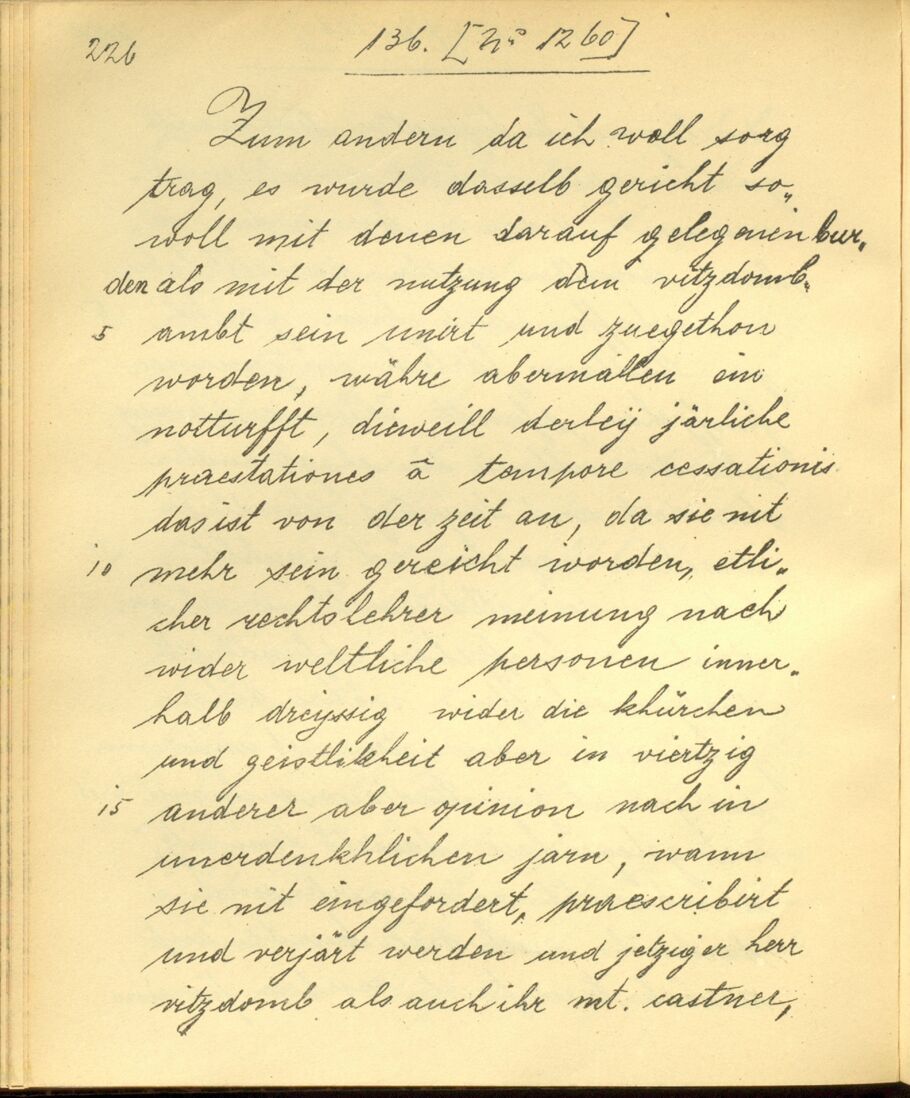 226
136. [No 1260]
Zum andern da ich woll sorg
trag, es wurde dasselb gericht so„
woll mit denen darauf gelegenen bur„
den als mit der nutzung dem vitzdomb„
5 ambt sein unirt und zuegethon
worden, währe abermallen ein
notturfft, dieweill derleÿ järliche
praestationes ā tempore cessationis
das ist von der zeit an, da sie nit
10 mehr sein gereicht worden, etli„
cher rechtslehrer meinung nach
wider weltliche personen inner„
halb dreÿssig wider die khürchen
und geistlikheit aber in viertzig
15 anderer aber opinion nach in
unerdenkhlichen jarn, wann
sie nit eingefordert, praescribirt
und verjärt werden und jetziger herr
vitzdomb als auch ihr mt. castner,